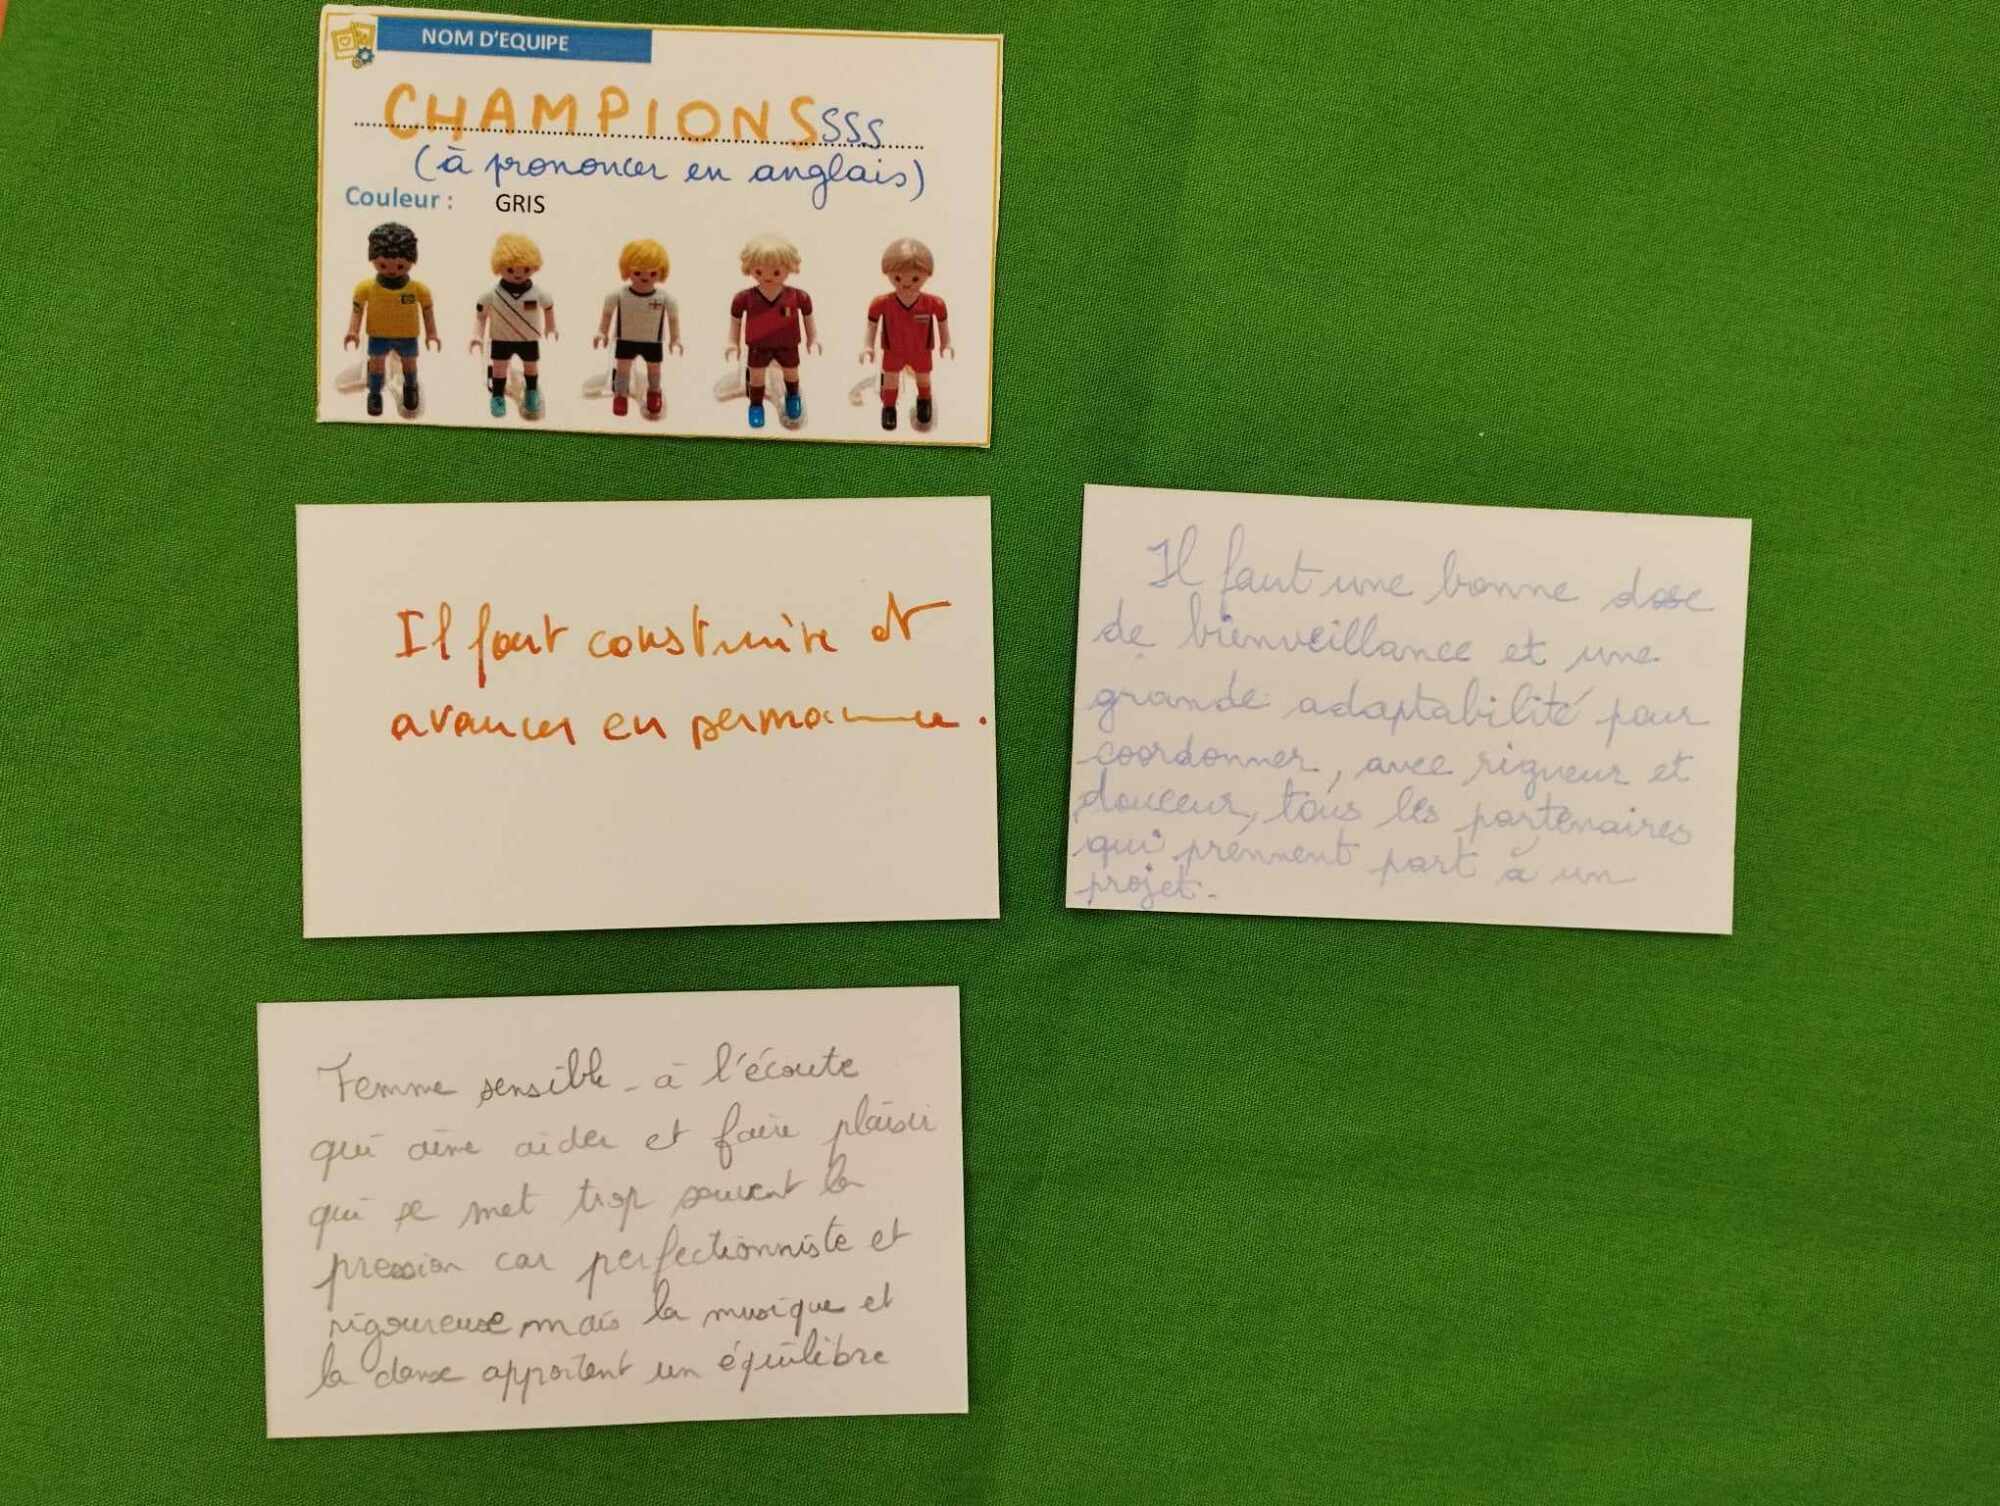 NOM D'EQUIPE
CHAMPIONSSSS
(à prononcer en anglais)
Couleur : GRIS
Il faut construire et
avancer en permanence.
Il faut une bonne dose
de bienveillance et une
grande adaptabilité pour
coordonner, avec rigueur et
douceur, tous les partenaires
qui prennent part à un
projet.
Femme sensible - à l'écoute
qui aime aider et faire plaisir
qui se met trop souvent la
pression car perfectionniste et
rigoureuse mais la musique et
la danse apportent un équilibre